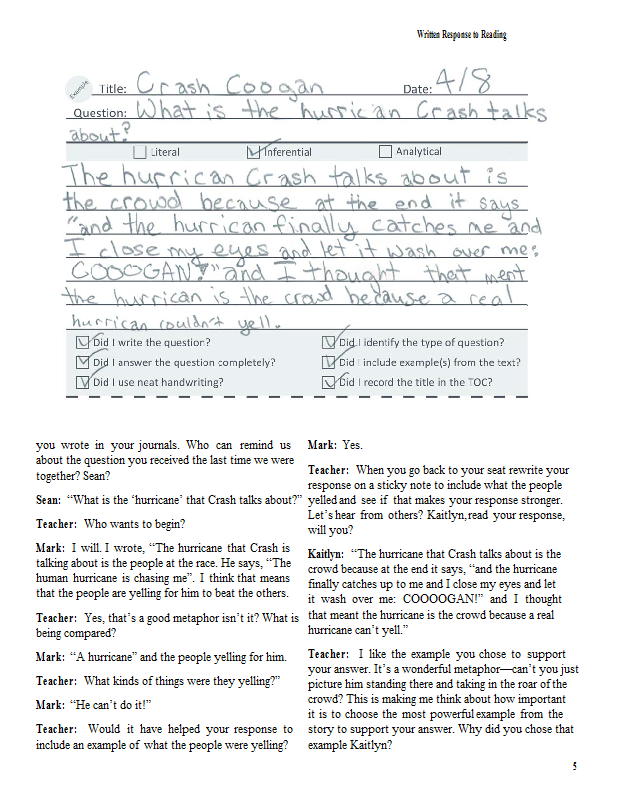 Written Response to Reading
Example
Title: Crash Coogan Date: 4/8
Question: What is the hurrican Crash talks
about?
Literal Inferential Analytical
The hurrican Crash talks about is
the crowd because at the end it says
"and the hurrican finally catches me and
I close my eyes and let it wash over me:
COOOGAN!" and I thought that ment
the hurrican is the crowd because a real
hurrican couldn't yell.
Did I write the question? Did I identify the type of question?
Did I answer the question completely? Did I include example(s) from the text?
Did I use neat handwriting? Did I record the title in the TOC?
you wrote in your journals. Who can remind us
about the question you received the last time we were
together? Sean?
Sean: “What is the ‘hurricane’ that Crash talks about?”
Teacher: Who wants to begin?
Mark: I will. I wrote, “The hurricane that Crash is
talking about is the people at the race. He says, “The
human hurricane is chasing me”. I think that means
that the people are yelling for him to beat the others.
Teacher: Yes, that’s a good metaphor isn’t it? What is
being compared?
Mark: “A hurricane” and the people yelling for him.
Teacher: What kinds of things were they yelling?”
Mark: “He can’t do it!”
Teacher: Would it have helped your response to
include an example of what the people were yelling?
Mark: Yes.
Teacher: When you go back to your seat rewrite your
response on a sticky note to include what the people
yelled and see if that makes your response stronger.
Let’s hear from others? Kaitlyn, read your response,
will you?
Kaitlyn: “The hurricane that Crash talks about is the
crowd because at the end it says, “and the hurricane
finally catches up to me and I close my eyes and let
it wash over me: COOOOGAN!” and I thought
that meant the hurricane is the crowd because a real
hurricane can’t yell.”
Teacher: I like the example you chose to support
your answer. It’s a wonderful metaphor—can’t you just
picture him standing there and taking in the roar of the
crowd? This is making me think about how important
it is to choose the most powerful example from the
story to support your answer. Why did you chose that
example Kaitlyn?
5